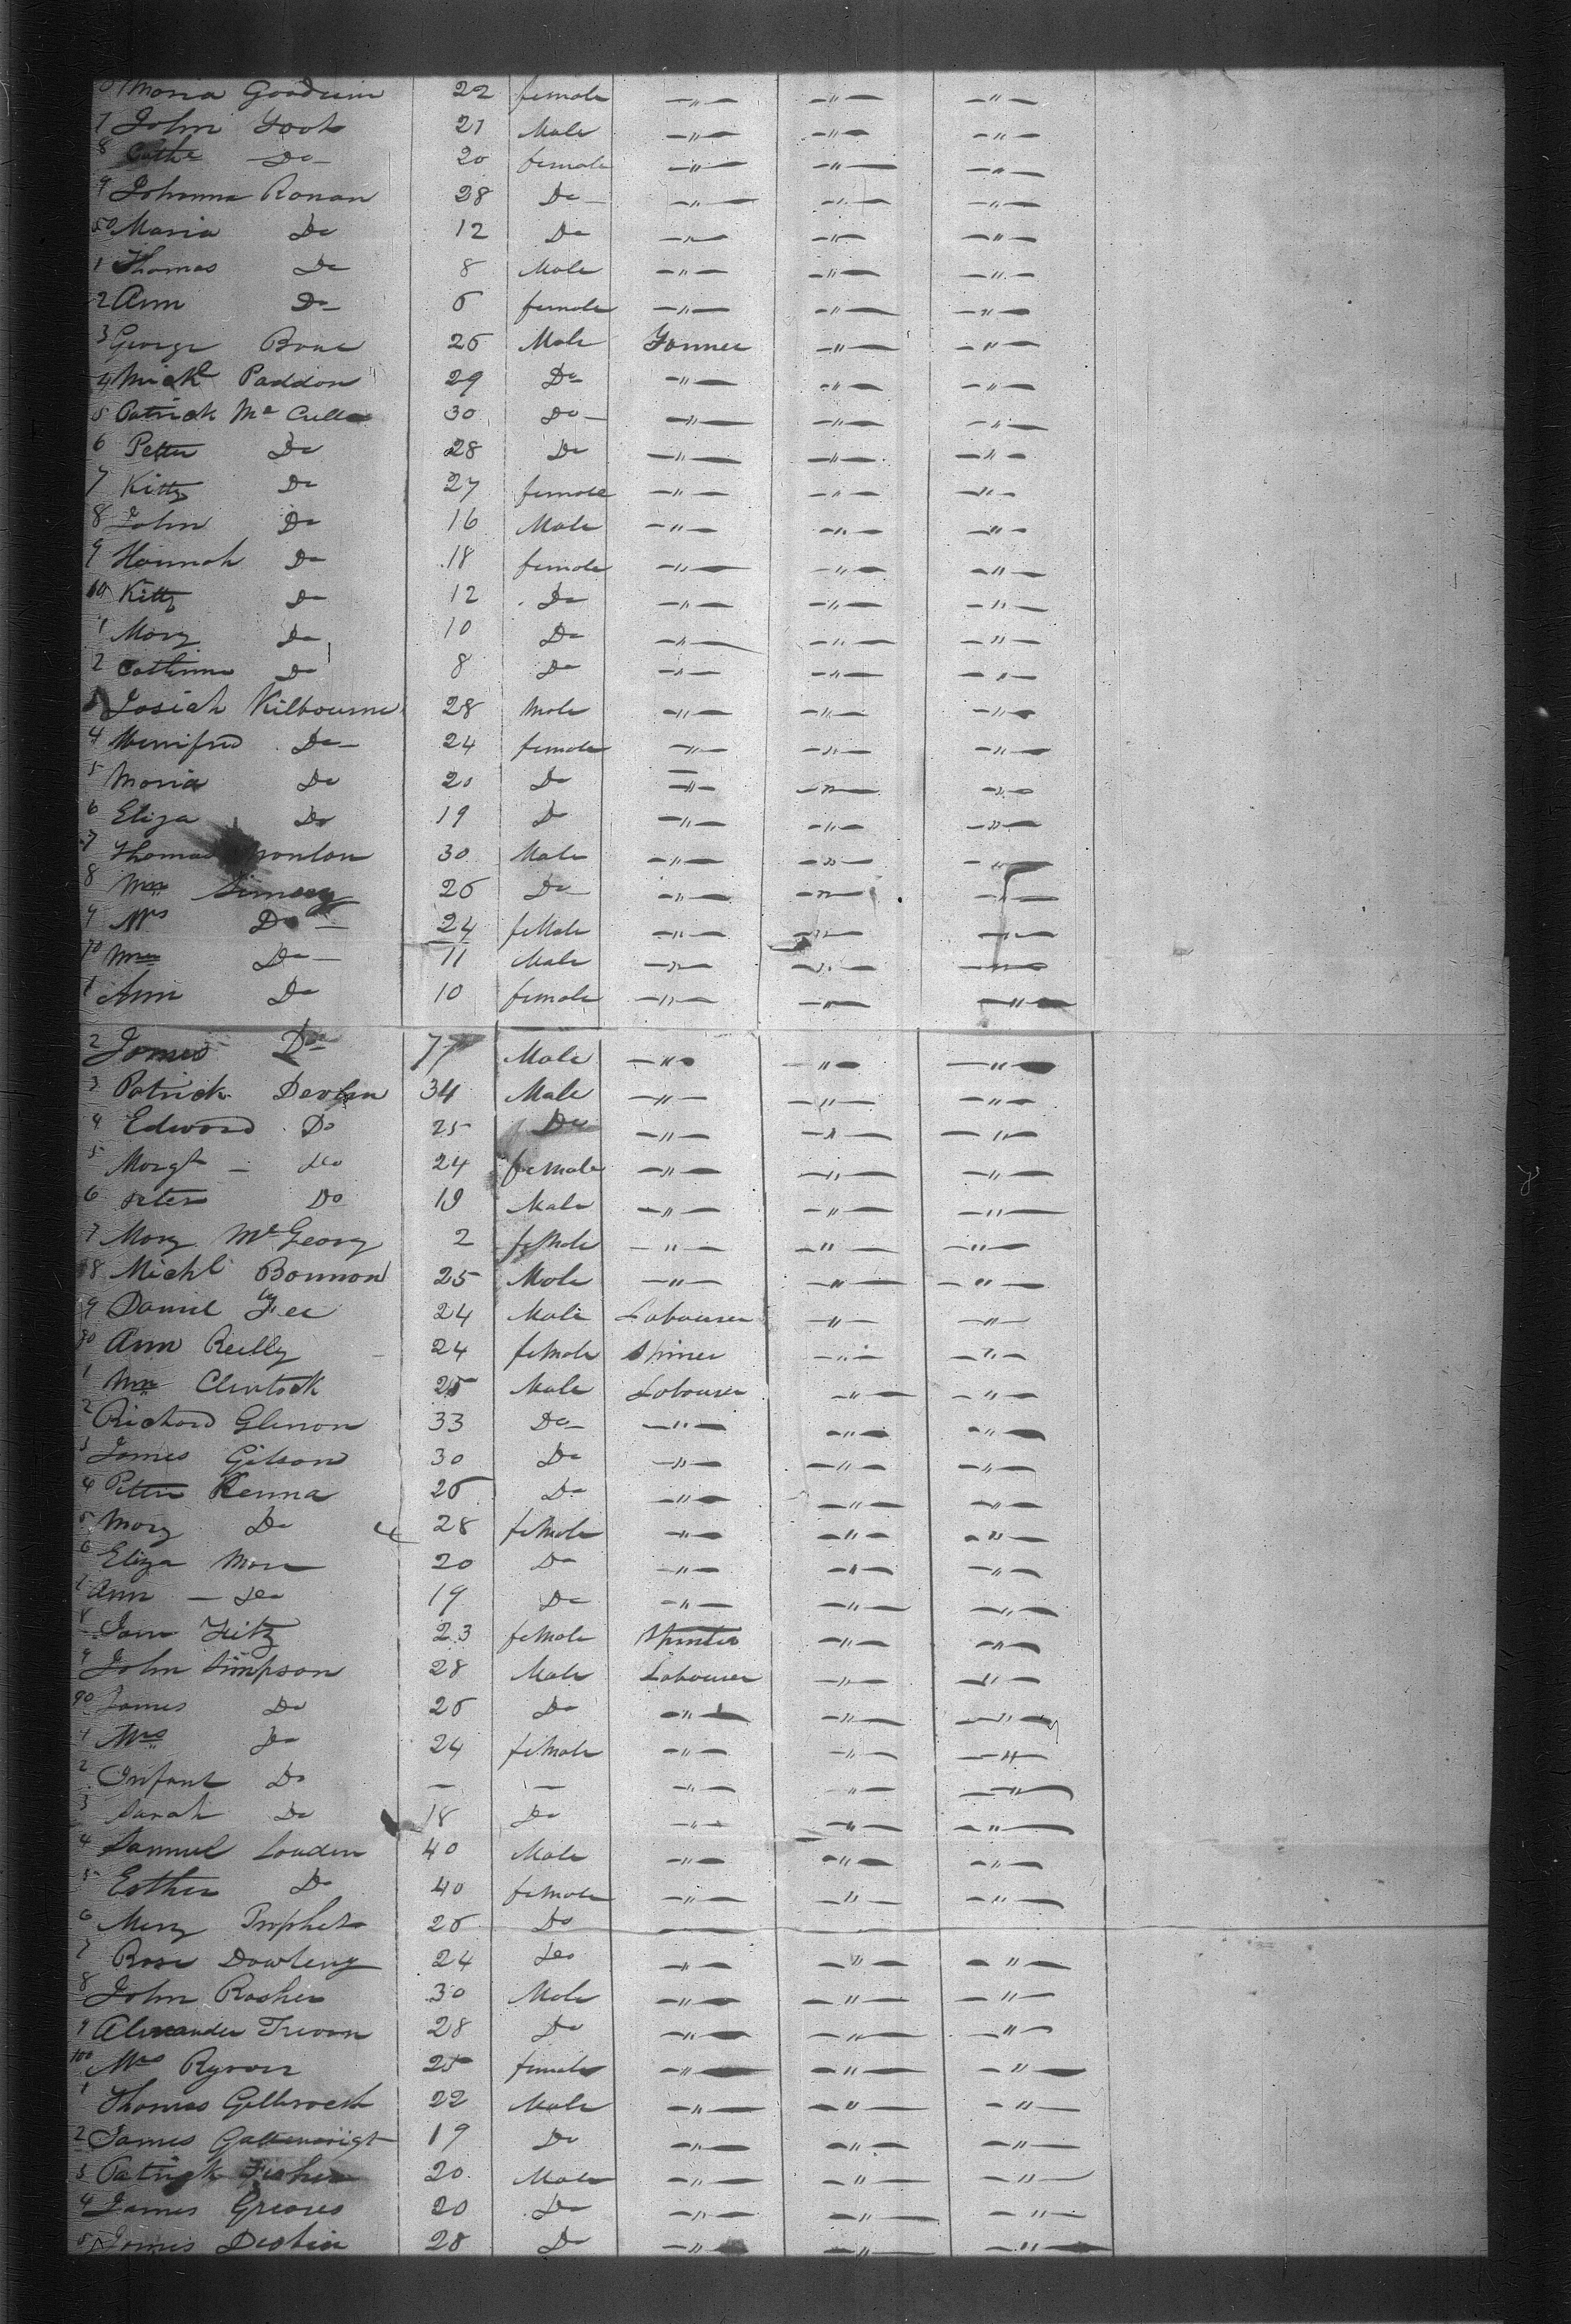 6 Maria Goodwin 22 female —"— —"— —"—
7 John 21 Male —"— —"— —"—
8 Cathe —Do— 20 female —"— —"— —"—
9 Johanna Ronan 28 Do— —"— —"— —"—
50 Maria Do 12 Do —"— —"— —"—
1 Thomas Do 8 Male —"— —"— —"—
2 Ann Do 6 female —"— —"— —"—
3 George 26 Male Farmer —"— —"—
4 Michl Paddon 29 Do —"— —"— —"—
5 Patrick Mc Culla 30 Do— —"— —"— —"—
6 Petter Do 28 Do —"— —"— —"—
7 Kitty Do 27 female —"— —"— —"—
8 John Do 16 Male —"— —"— —"—
9 Hannah Do 18 female —"— —"— —"—
60 Kitty Do 12 Do —"— —"— —"—
1 Mary Do 10 Do —"— —"— —"—
2 Do 8 Do —"— —"— —"—
3 Josiah Kilbourne 28 Male —"— —"— —"—
4 Winnifred Do— 24 female —"— —"— —"—
5 Maria Do 20 Do —"— —"— —"—
6 Eliza Do 19 Do —"— —"— —"—
7 Thomas 30 Male —"— —"— —"—
8 Wm 26 Do —"— —"— —"—
9 Mrs Do — 24 feMale —"— —"— —"—
70 Wm Do — 11 Male —"— —"— —"—
1 Ann Do 10 female —"— —"— —"—
2 James Do 7 Male —"— —"— —"—
3 Patrick Devlin 34 Male —"— —"— —"—
4 Edward Do 25 Do —"— —"— —"—
5 Margt — Do 24 feMale —"— —"— —"—
6 Peter Do 19 Male —"— —"— —"—
7 Mary McGeary 2 feMale —"— —"— —"—
78 Michl Bannon 25 Male —"— —"— —"—
9 Daniel Fee 24 Male Labourer —"— —"—
80 Ann Reilly 24 feMale Spiner —"— —"—
1 Wm Clintock 25 Male Labourer —"— —"—
2 Richard Glenon 33 Do— —"— —"— —"—
3 James Gibson 30 Do —"— —"— —"—
4 Petter Kenna 26 Do —"— —"— —"—
5 Mary Do 28 feMale —"— —"— —"—
6 Eliza 20 Do —"— —"— —"—
7 Ann — Do 19 Do —"— —"— —"—
8 Jane Fitz 23 feMale Spinster —"— —"—
9 John Simpson 28 Male Labourer —"— —"—
90 James Do 26 Do —"— —"— —"—
1 Mrs Do 24 feMale —"— —"— —"—
2 Infant Do — — —"— —"— —"—
3 Sarah Do 18 Do —"— —"— —"—
4 Samuel Louden 40 Male —"— —"— —"—
5 Esther Do 40 feMale —"— —"— —"—
6 Mery Prophet 26 Do
7 Rose Dowling 24 Do —"— —"— —"—
8 John Rosher 30 Male —"— —"— —"—
9 Alexander 28 Do —"— —"— —"—
100 Mrs 25 female —"— —"— —"—
1 Thomas 22 Male —"— —"— —"—
2 James 19 Do —"— —"— —"—
3 Patrick Fisher 20 Male —"— —"— —"—
4 James Greaves 20 Do —"— —"— —"—
5 James 28 Do —"— —"— —"—